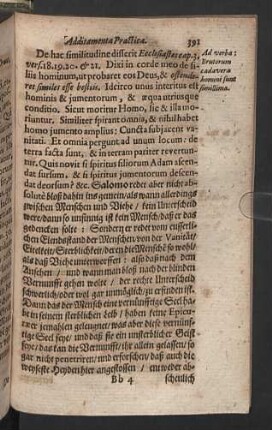 Additamenta Practica. 391
De hac similitudine disserit Ecclesiastes cap. 3.
vers. 18. 19. 20. & 21. Dixi in corde meo de fi-
liis hominum, ut probaret eos Deus, & ostende-
ret similes esse bestiis. Idcirco unus interitus est
hominis & jumentorum, & æqua utriusque
conditio. Sicut moritur Homo, sic & illa mo-
riuntur. Similiter spirant omnia, & nihil habet
homo jumento amplius: Cuncta subjacent va-
nitati. Et omnia pergunt ad unum locum: de
terra facta sunt, & in terram pariter revertun-
tur. Quis novit si spiritus filiorum Adam ascen-
dat sursum, & si spiritus jumentorum descen-
dat deorsum? &c. Salomo redet aber nicht ab-
solutè bloß dahin ins gemein/ als wann allerdings
zwischen Menschen und Viehe / kein Unterscheid
were/ dann so unsinnig ist kein Mensch/ daß er das
gedencken solte: Sondern er redet vom eusser-
lichen Elendstand der Menschen/ von der Vanitât/
Eitelkeit/ Sterbligkeit/ deren die Menschē so wohl/
als daß Viehe unterworffen: als daß nach dem
Ansehen / und wann man bloß nach der blinden
Vernunfft gehen wolte / der rechte Unterscheid
schwerlich/ oder wol gar unmüglich/ zu erfinden ist.
Dann das der Mensch eine vernünfftige Seel ha-
be in seinem sterblichen Leib / haben keine Epicu-
rer jemahlen geleugnet/ was aber diese vernünff-
tige Seel seye/ und daß sie ein unsterblicher Geist
seye / das kan die Vernunfft/ ihr allein gelassen/ so
gar nicht penetriren/ und erforschen/ daß auch die
weyseste Heyden hier angestossen / entweder ab-
Bb 4 scheulich
Ad verba:
Brutorum
cadavera
homini sunt
simillima.